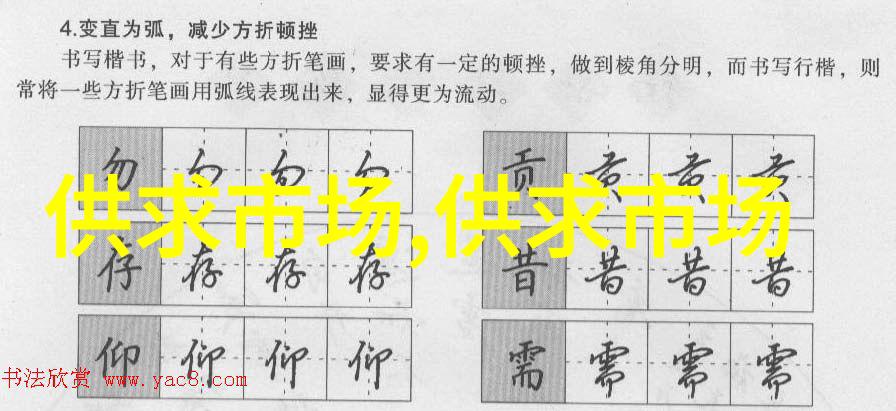 4.变直为弧，减少方折顿挫
书写楷书，对于有些方折笔画，要求有一定的顿挫，做到棱角分明，而书写行楷，则
常将一些方折笔画用弧线表现出来，显得更为流动。
勿 勿 勿 勿 贡 贡 贡 贡
供求市场,供求市场
存 存 存 存 昔 昔 昔 昔
仰 仰 仰 仰 需 需 需 需
书法欣赏 www.yac8.com